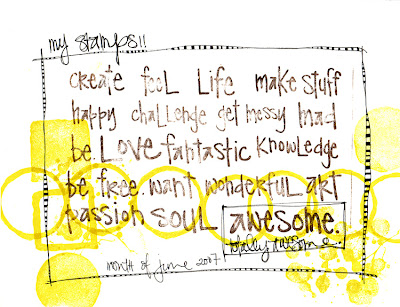 my stamps!!
create feel Life make stuff
happy challenge get messy mad
be. Love fantastic knowledge
be free. want wonderful art
passion soul awesome.
totally awesome
month of june 2007